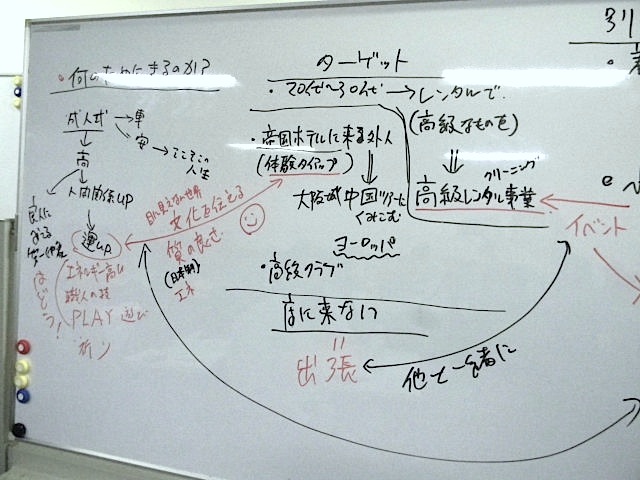 何のためにきるのか?
成人式→車
安→そこそこの
人生
高
人間関係UP
運up
目に見えない世界
文化を伝える
質の良さ
(日本製)
エネ
エネルギー高い
職人の技
PLAY 遊び
はどう!
ターゲット
・20代〜30代→レンタルで
(高級なものを)
・帝国ホテルに来る外人
(体験タイアップ)
大阪城 中国ツアーに
くみこむ
ヨーロッパ
・高級クラブ
クリーニング
高級レンタル事業
イベント
店に来ない
出張
他と一緒に